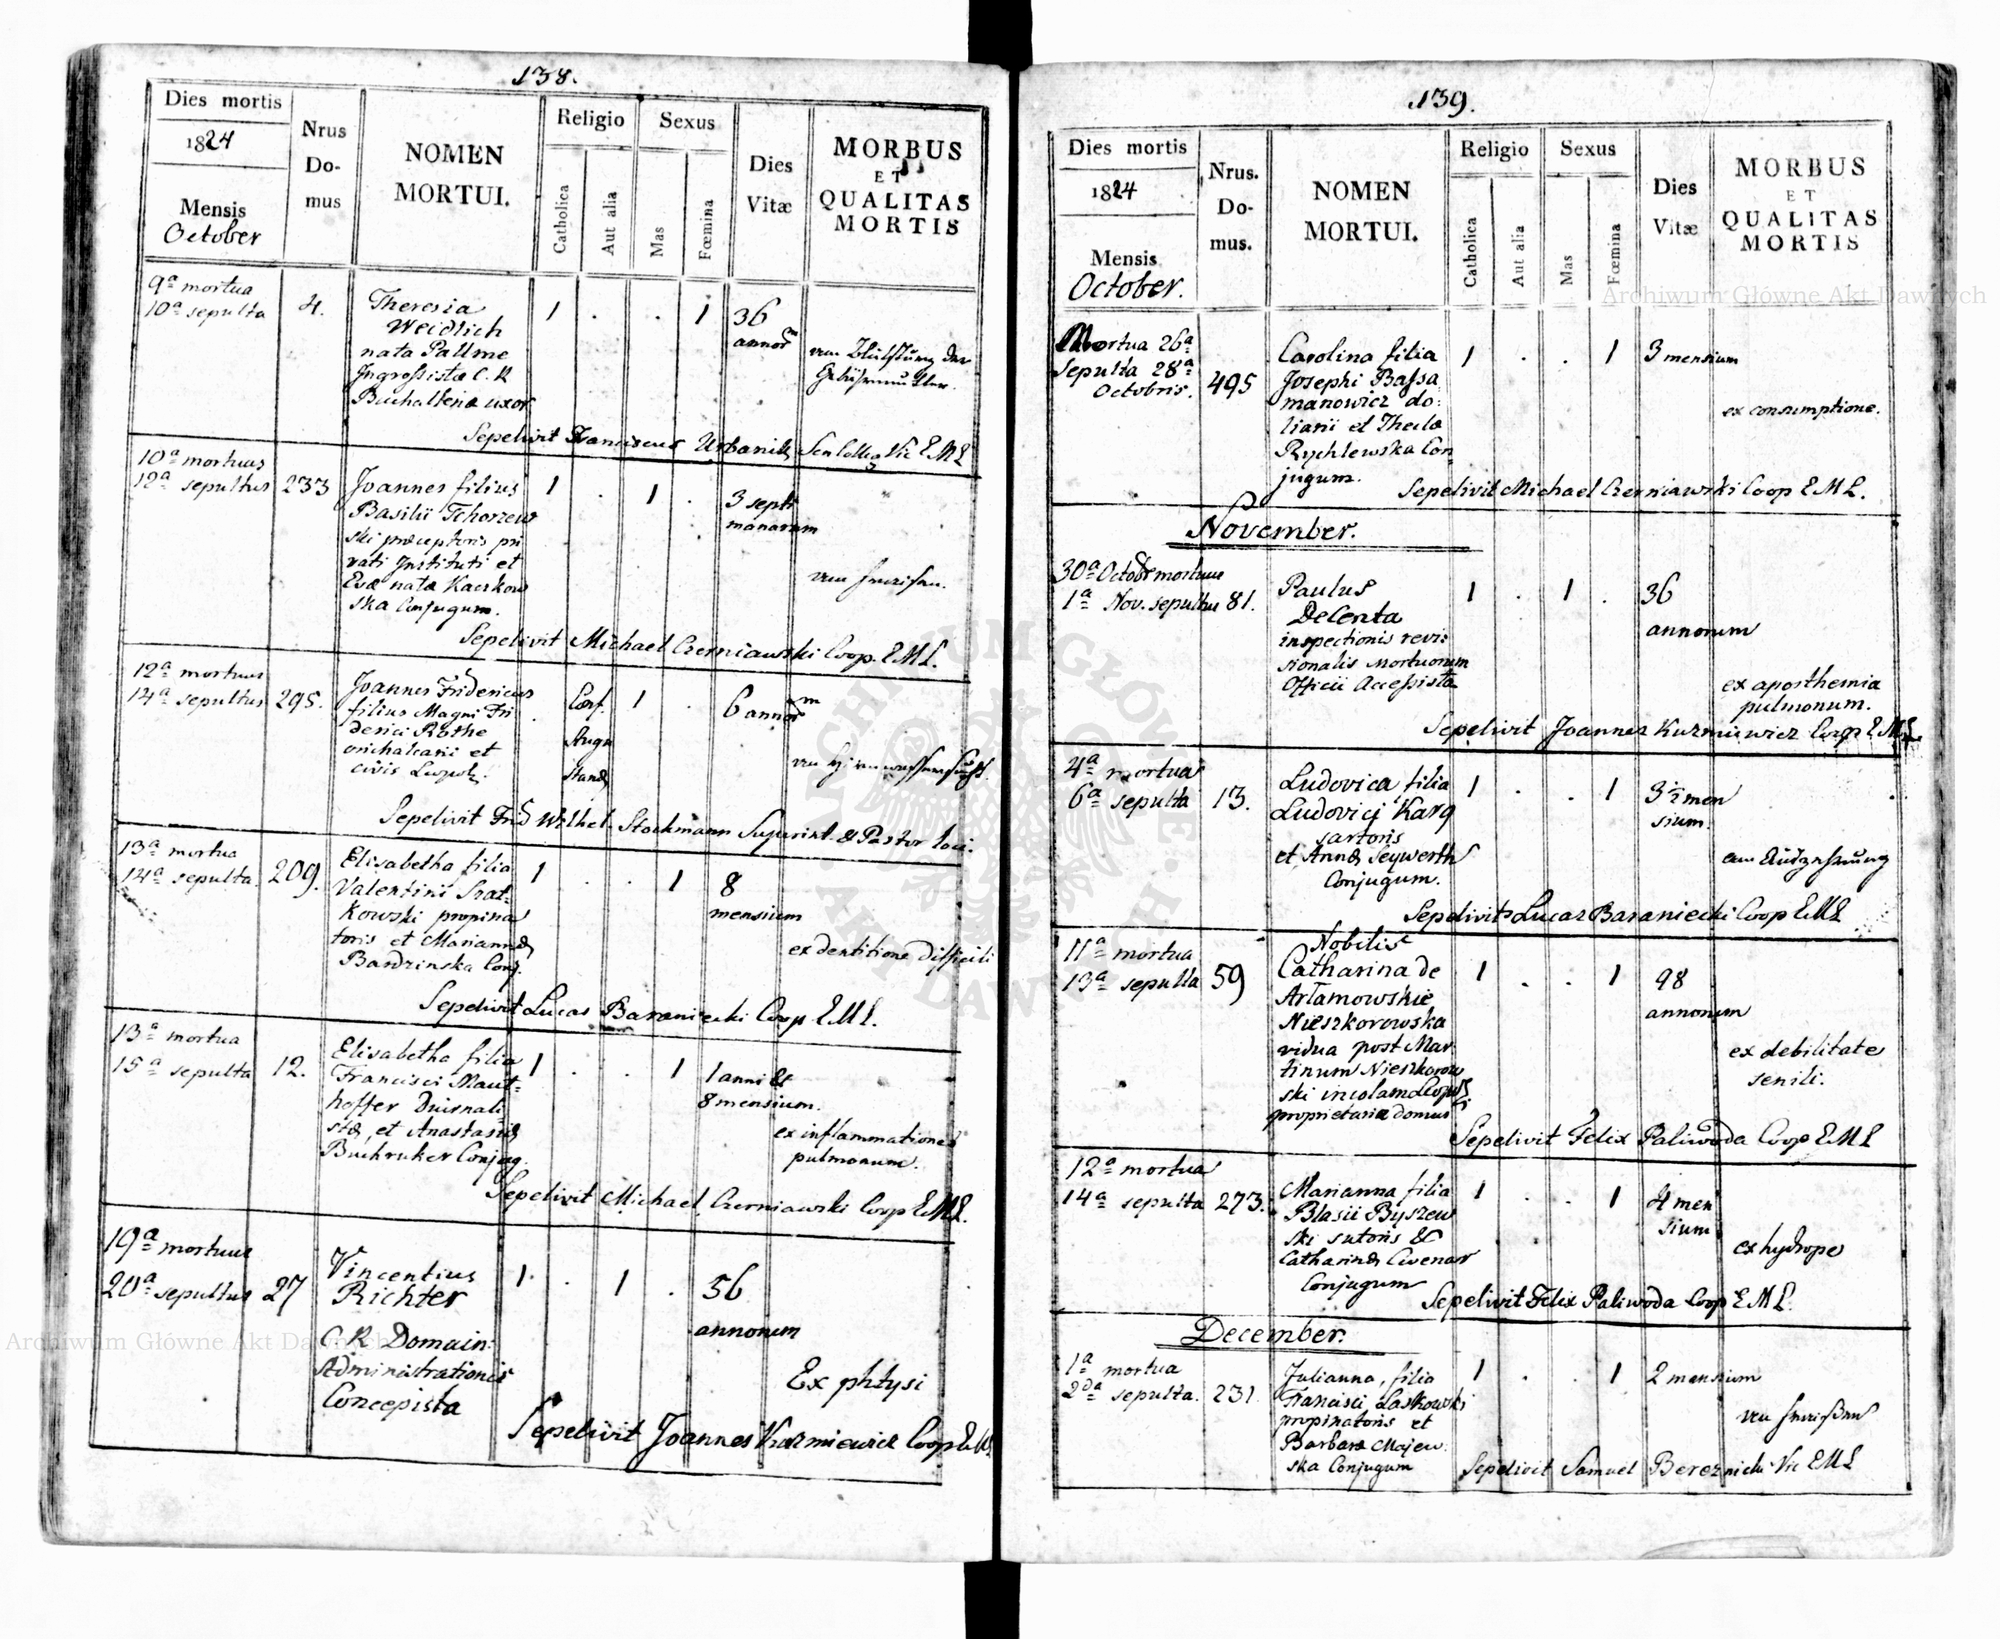 138.
Dies mortis
1824
Mensis
October
Nrus
Do-
mus
NOMEN
MORTUI.
Religio
Catholica
Aut alia
Sexus
Mas
Fœmina
Dies
Vitæ
MORBUS
ET
QUALITAS
MORTIS
9a mortua
10a sepulta
4.
Theresia
Weidlich
nata Pallme
Ingrossistæ C. R
Buchalteriæ uxor
1 . . 1
36
annorm
Sepelivit Franciscus Urbanik Vic E M L
10a mortuus
12a sepultus
233
Joannes filius
Basilii Tchorzew
ski præceptoris pri
vati Instituti et
Evæ natæ Kaczkow
ska Conjugum.
1 . 1 .
3 septi
manarum
Sepelivit Michael Czerniawski Coop. E M L.
12a mortuus
14a sepultus
295.
Joannes Fridericus
filius Magni Fri
derici Rothe
orichalcarii et
civis Leopol.
. Conf. 1 .
Augu
stanæ
6 annorm
Sepelivit Frid Wilhel. Stockmann Superint. & Pastor loci.
13a mortua
14a sepulta.
209.
Elisabetha filia
Valentini Szat-
kowski propina
toris et Mariannæ
Bardzinska Conj.
1 . . 1
8
mensium
ex dentitione difficili
Sepelivit Lucas Baraniecki Coop E M L.
13a mortua
15a sepulta
12.
Elisabetha filia
Francisci Maut-
hoffer Diurnali
stæ, et Anastasiæ
Buchruker Conjug.
1 . . 1
1 anni &
8 mensium.
ex inflammatione
pulmonum.
Sepelivit Michael Czerniawski Coop E M L.
19a mortuus
20a sepultus
27
Vincentius
Richter
C. R. Domain:
Administrationis
Concepista
1. . 1 .
56
annorum
Ex phtysi
Sepelivit Joannes Kuzmiewicz Coop E M
139.
Dies mortis
1824
Mensis
October.
Nrus.
Do-
mus.
NOMEN
MORTUI.
Religio
Catholica
Aut alia
Sexus
Mas
Fœmina
Dies
Vitæ
MORBUS
ET
QUALITAS
MORTIS
Mortua 26a
Sepulta 28a
Octobris.
495
Carolina filia
Josephi Bassa
manowicz do:
liarii et Theclæ
Rychlewska Con
jugum.
1 . . 1
3 mensium
ex consumptione.
Sepelivit Michael Czerniawski Coop E M L.
November.
30a Octobr mortuus
1a Nov. sepultus
81.
Paulus
DeCenta
inspectionis revi:
sionalis Mortuorum
Officii Accessista
1 . 1 .
36
annorum
ex aposthemia
pulmonum.
Sepelivit Joannes Kuzmiewicz Coop E M L
4a mortua
6a sepulta
13.
Ludovica filia
Ludovici Karg
sartoris
et Annæ Seywerth
Conjugum.
1 . . 1
3 1/2 men
sium.
am Auszehrung
Sepelivit Lucas Baraniecki Coop E M L
11a mortua
13a sepulta
59
Nobilis
Catharina de
Artamowskie
Nieszkorowska
vidua post Mar
tinum Nieszkorow
ski incolam Leopol.
proprietaria domus
1 . . 1
98
annorum
ex debilitate
senili.
Sepelivit Felix Paliwoda Coop E M L
12a mortua
14a sepulta
273.
Marianna filia
Blasii Byszew
ski sutoris &
Catharinæ Cwenar
Conjugum
1 . . 1
4 men
sium
ex hydrope
Sepelivit Felix Paliwoda Coop E M L.
December.
1a mortua
2da sepulta.
231
Julianna, filia
Francisci Laskowski
propinatoris et
Barbaræ Majew:
ska Conjugum
1 . . 1
2 mensium
von Fraisen
Sepelivit Samuel Bereznicki Vic E M L
Archiwum Główne Akt Dawnych
Archiwum Główne Akt Dawnych
ARCHIWUM GŁÓWNE AKT DAWNYCH